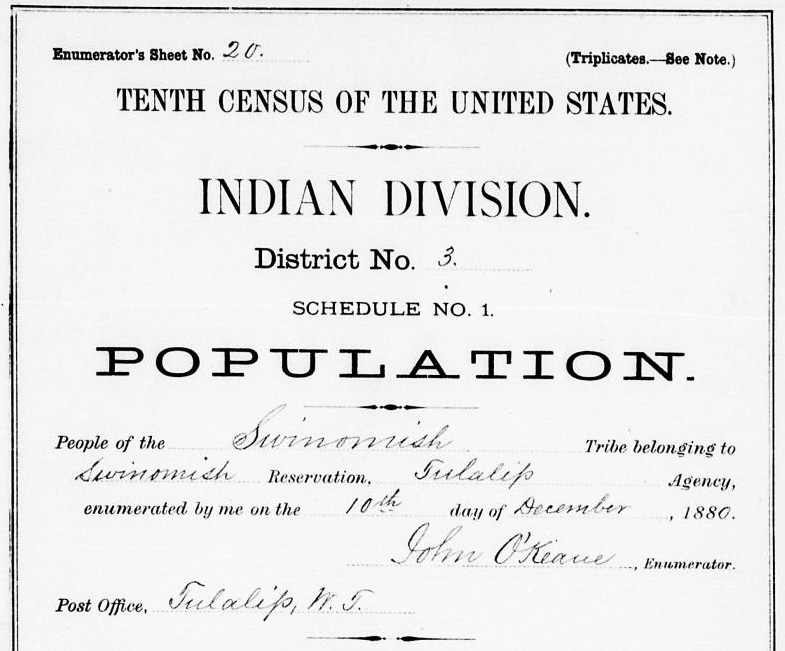 Enumerator's Sheet No. 20.
(Triplicates.—See Note.)
TENTH CENSUS OF THE UNITED STATES.
INDIAN DIVISION.
District No. 3.
SCHEDULE NO. 1.
POPULATION.
People of the Swinomish Tribe belonging to
Swinomish Reservation, Tulalip Agency,
enumerated by me on the 10th day of December, 1880.
John O'Keane, Enumerator.
Post Office, Tulalip, W. T.